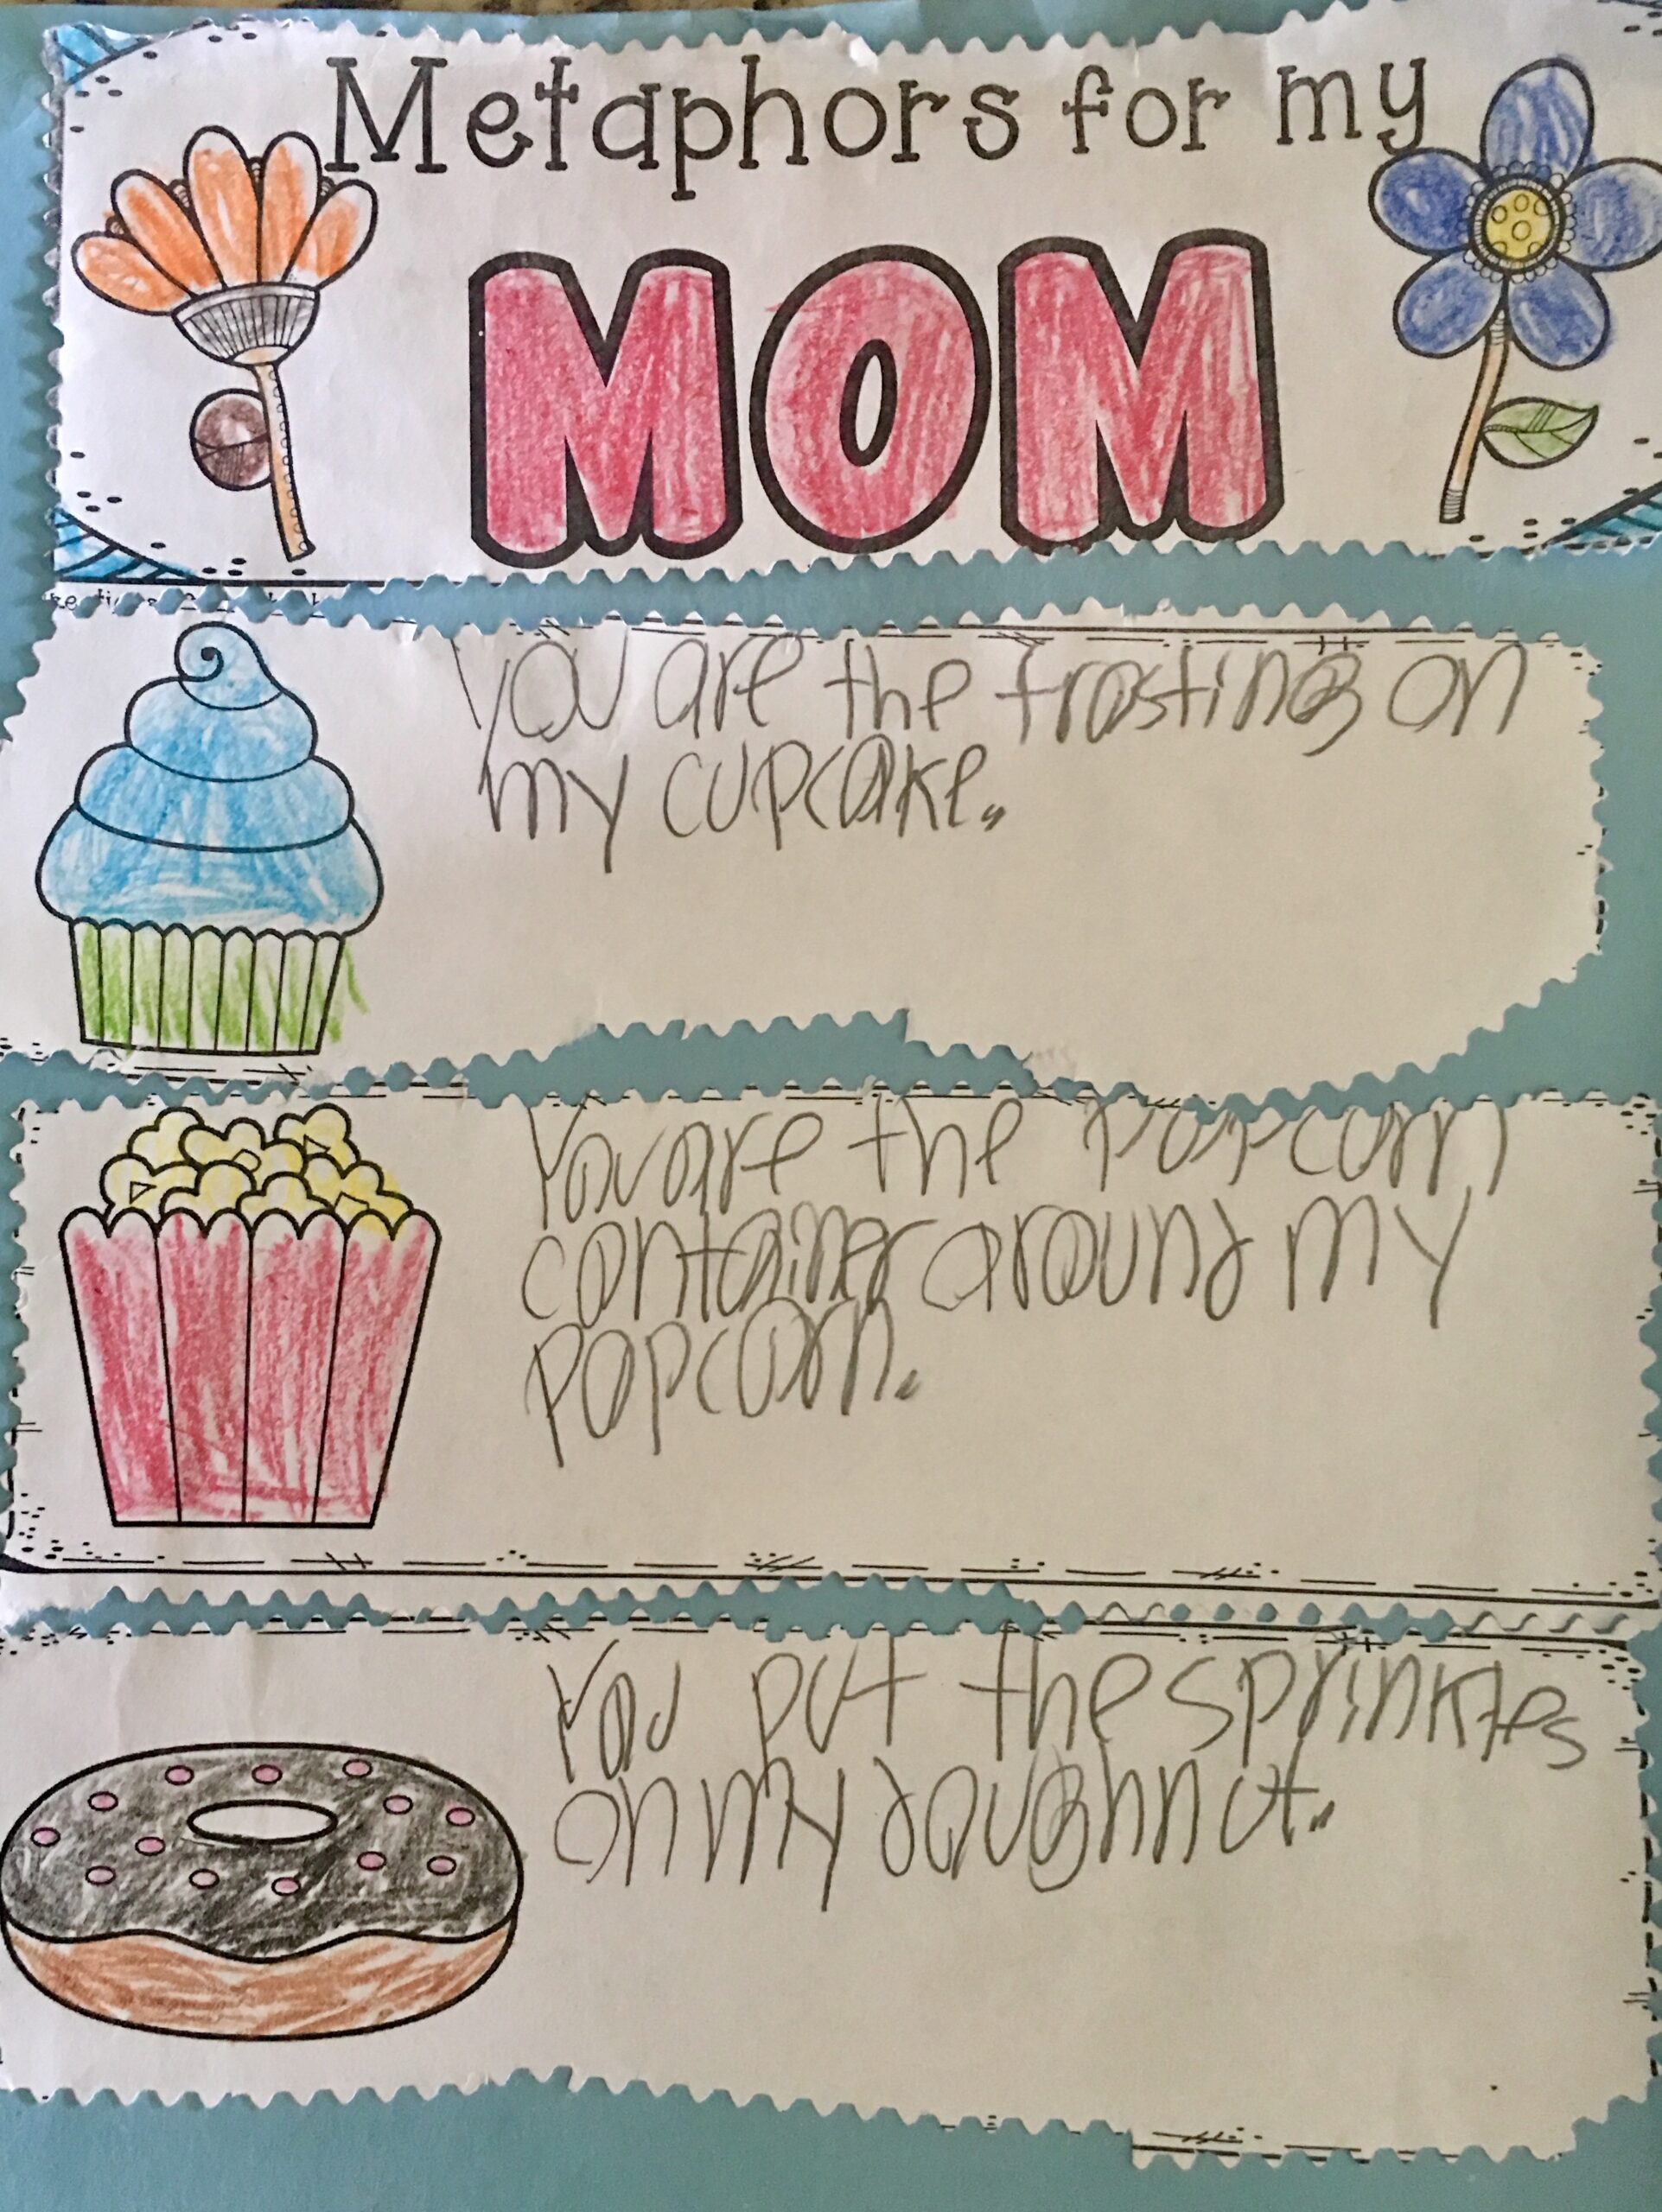 Metaphors for my
MOM
You are the frosting on
my cupcake.
You are the popcorn
container around my
popcorn.
You put the sprinkles
on my doughnut.